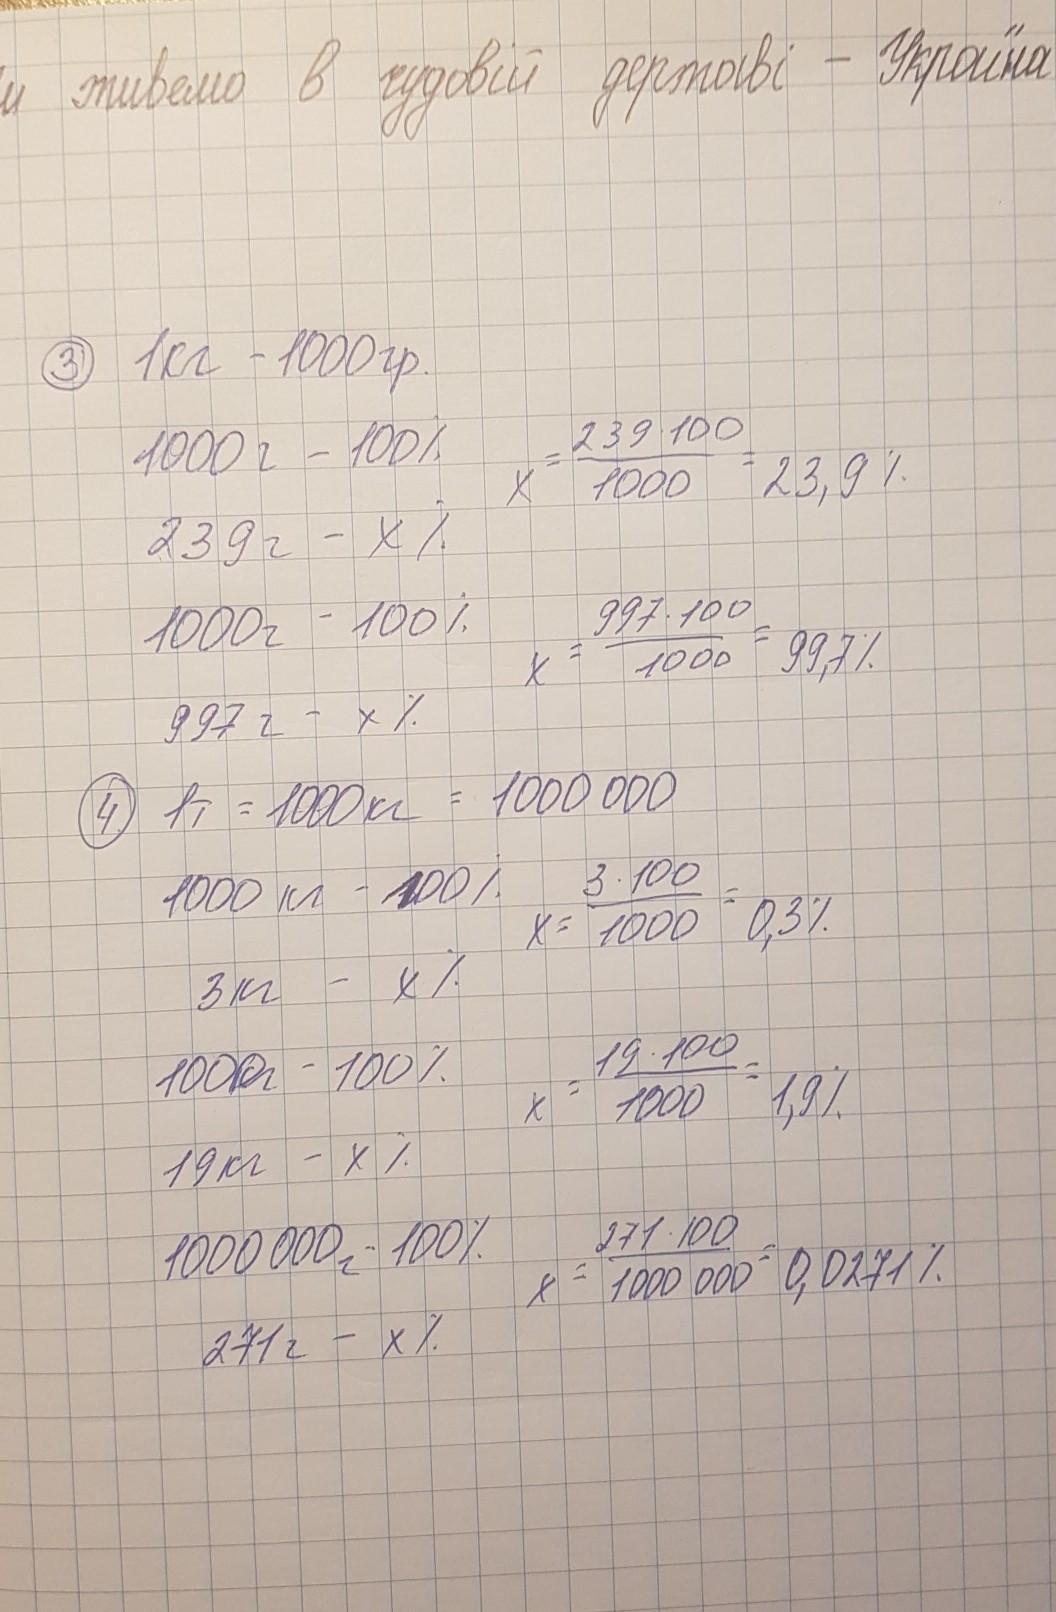 и живемо в чудовій державі - Україна
③ 1кг - 1000гр.
1000г - 100% x = 239·100 / 1000 = 23,9%
239г - x%
1000г - 100% x = 997·100 / 1000 = 99,7%
997г - x%
④ 1т = 1000кг = 1000 000
1000кг - 100% x = 3·100 / 1000 = 0,3%
3кг - x%
1000кг - 100% x = 19·100 / 1000 = 1,9%
19кг - x%
1000 000г - 100% x = 271·100 / 1000 000 = 0,0271%
271г - x%